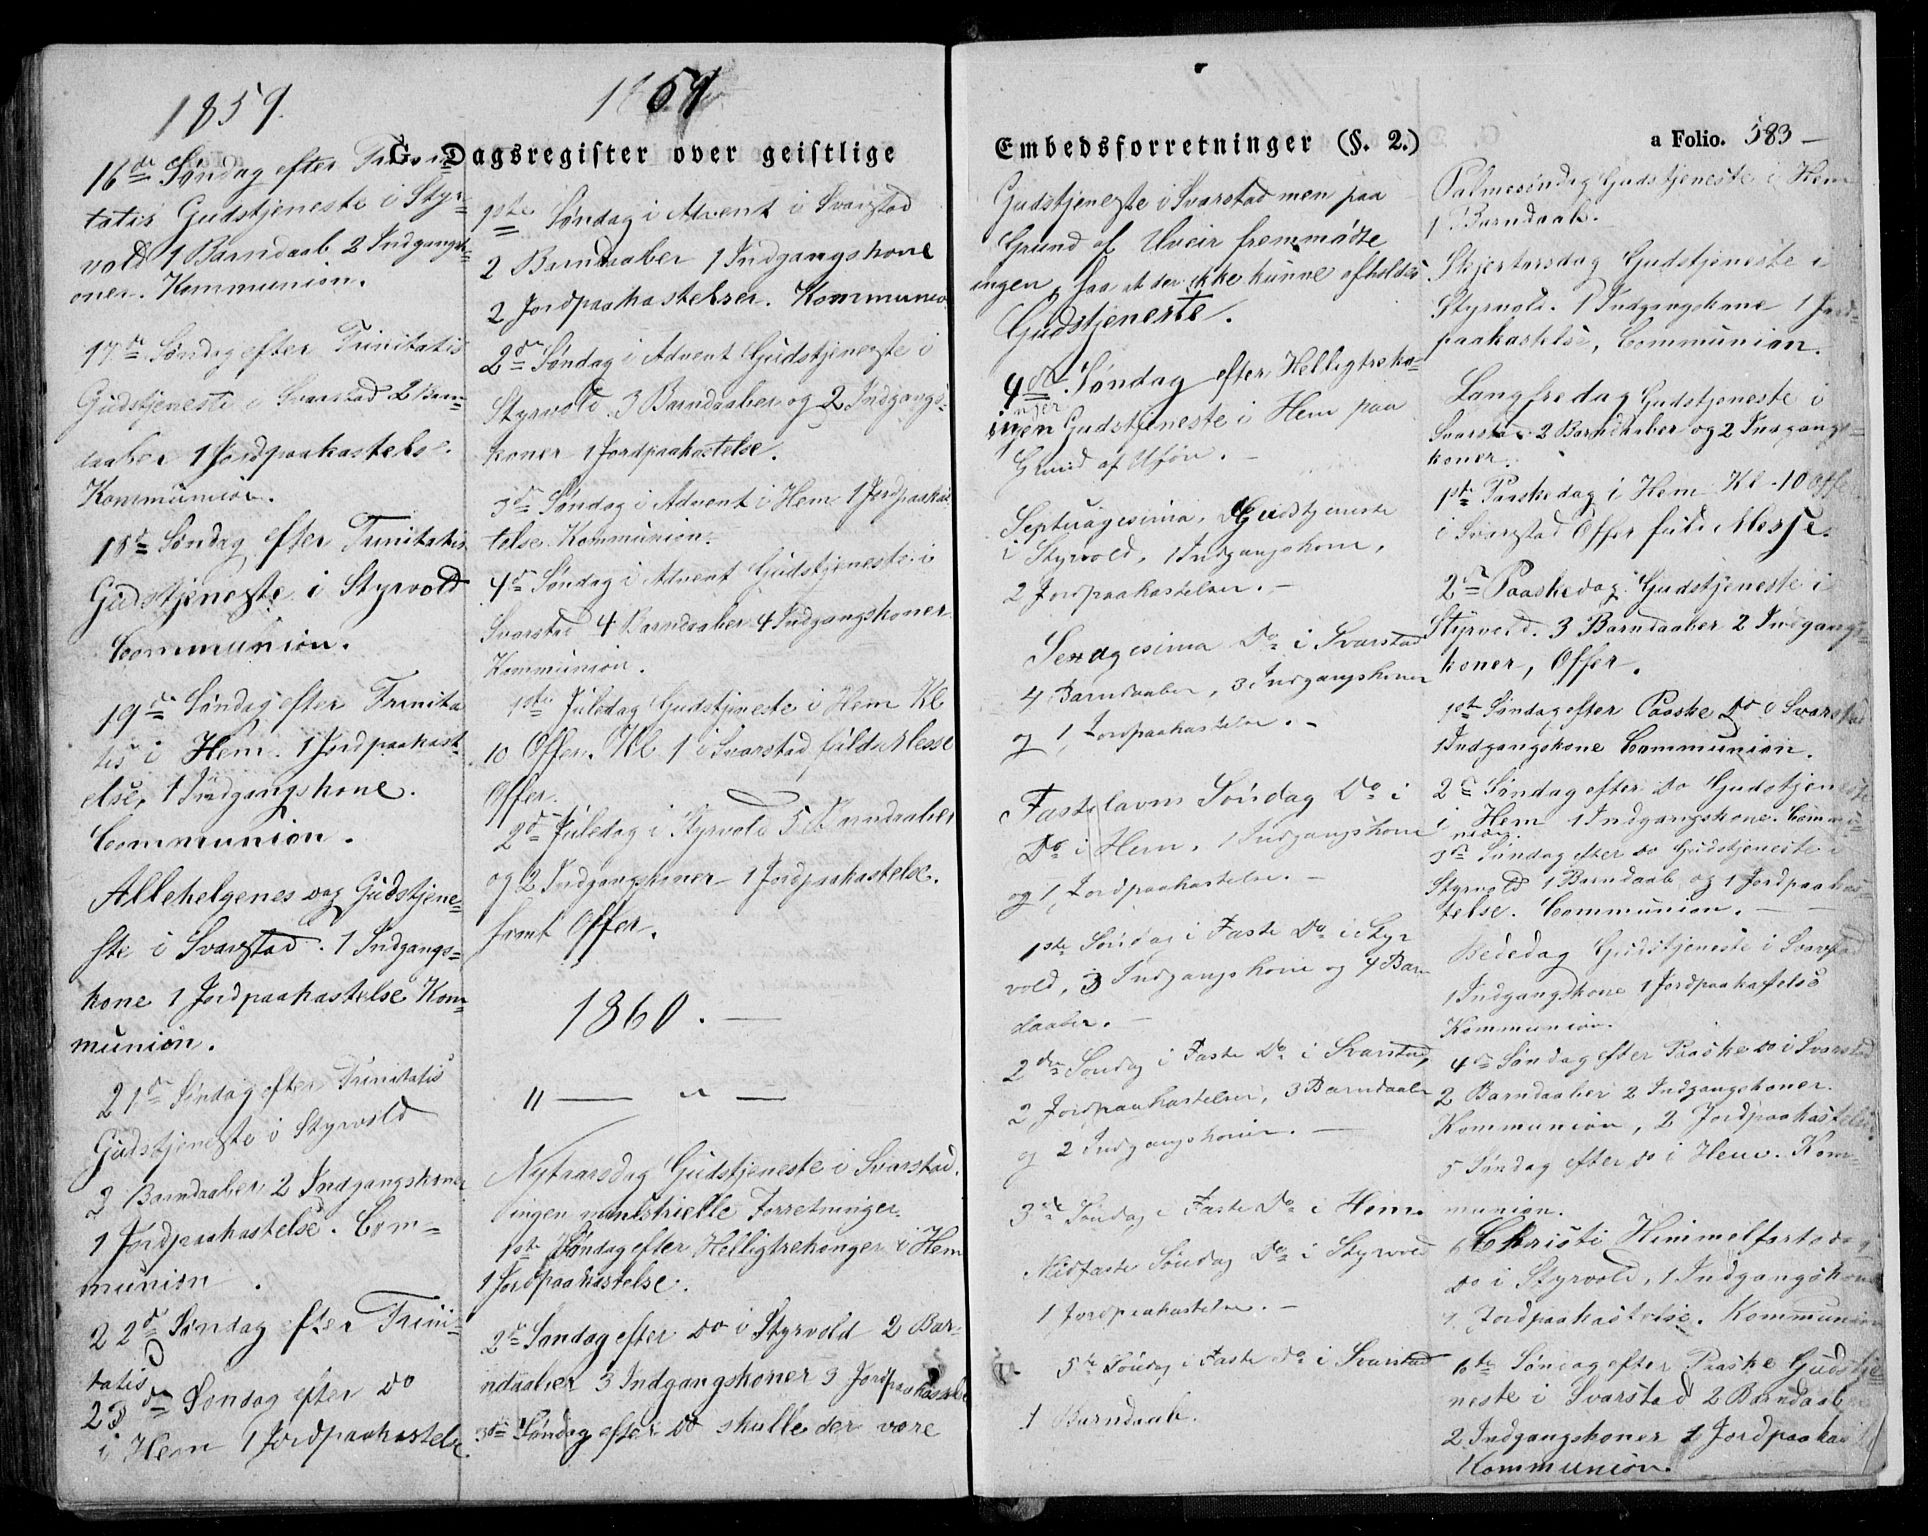 1859.
1859
G. Dagsregister over geistlige
Embedsforretninger (§. 2.)
a Folio. 583 –
16de Søndag efter Trini-
tatis Gudstjeneste i Styr-
vold 1 Barndaab 2 Indgangsk-
oner. Kommunion.
17de Søndag efter Trinitatis
Gudstjeneste i Svarstad 2 Barn-
daaber 1 Jordpaakastelse.
Kommunion.
18de Søndag efter Trinitatis
Gudstjeneste i Styrvold
Communion.
19de Søndag efter Trinita
tis i Hem. 1 Jordpaakast-
else, 1 Indgangskone.
Communion.
Allehelgenes dag Gudstjene-
ste i Svarstad. 1 Indgangs-
kone 1 Jordpaakastelse Kom-
munion.
21de Søndag efter Trinitatis
Gudstjeneste i Styrvold
3 Barndaaber 2 Indgangskoner
1 Jordpaakastelse. Com-
munion.
22de Søndag efter Trini-
tatis
23de Søndag efter do
i Hem 1 Jordpaakastelse
1ste Søndag i Advent i Svarstad
2 Barndaaber 1 Indgangskone
2 Jordpaakastelser. Kommunion
2den Søndag i Advent Gudstjeneste i
Styrvold. 3 Barndaaber og 2 Indgangs-
koner 1 Jordpaakastelse.
3de Søndag i Advent i Hem 1 Jordpaakas
telse. Kommunion.
4de Søndag i Advent Gudstjeneste i
Svarstad 4 Barndaaber 4 Indgangskoner
Kommunion.
1ste Juledag Gudstjeneste i Hem Kl
10 Offer. Kl 1 i Svarstad fuld Messe
Offer.
2den Juledag i Styrvold 5 Barndaaber
og 2 Indgangskoner 1 Jordpaakastelse.
samt Offer.
1860. —
" — " —
Nytaarsdag Gudstjeneste i Svarstad.
ingen ministrielle Forretninger.
1ste Søndag efter Helligtrekonger i Hem
1 Jordpaakastelse.
2den Søndag efter Do i Styrvold 2 Bar-
ndaaber 3 Indgangskoner 3 Jordpaakastelse
3die Søndag efter Do skulle der være
Gudstjeneste i Svarstad men paa
Grund af Uveir fremmødte
ingen, saa at der ikke kunne afholdes
Gudstjeneste.
4de Søndag efter Helligtreko-
nger
ingen Gudstjeneste i Hem paa
Grund af Uføre. –
Septuagesima, Gudstjeneste
i Styrvold, 1 Indgangskone,
2 Jordpaakastelser. –
Sexagesima Do i Svarstad
4 Barndaaber, 3 Indgangskoner
og 1 Jordpaakastelse. –
Fastelavns Søndag Do i
Do i Hem, 1 Indgangskone
og 1 Jordpaakastelse. –
1ste Søndag i Faste Do i Styr
vold, 3 Indgangskoner og 4 Barn
daaber. –
2den Søndag i Faste Do i Svarstad,
2 Jordpaakastelser, 3 Barndaaber
og 2 Indgangskoner. –
3die Søndag i Faste Do i Hem.
Midfaste Søndag Do i Styrvold
1 Jordpaakastelse. –
5te Søndag i Faste Do i Svarstad
1 Barndaab.
Palmesøndag Gudstjeneste i Hem
1 Barndaab.
Skjertorsdag Gudstjeneste i
Styrvold. 1 Indgangskone 1 Jord-
paakastelse, Communion.
Langfredag Gudstjeneste i
Svarstad 2 Barndaaber og 2 Indgangs-
koner.
1ste Paaskedag i Hem Kl. 10 Offer
i Svarstad Offer fuld Messe.
2den Paaskedag Gudstjeneste i
Styrvold. 3 Barndaaber 2 Indgangs-
koner, Offer.
1ste Søndag efter Paaske Do i Svarstad
1 Indgangskone Communion.
2den Søndag efter Do Gudstjeneste
i Hem 1 Indgangskone. Commu-
nion.
3die Søndag efter Do Gudstjeneste i
Styrvold 1 Barndaab og 1 Jordpaakas
telse. Communion. — —
Bededag Gudstjeneste i Svarstad
1 Indgangskone 1 Jordpaakastelse
Kommunion.
4de Søndag efter Paaske Do i Svarstad
2 Barndaaber 2 Indgangskoner.
Kommunion, 2 Jordpaakastelser.
5 Søndag efter Do i Hem. Kom-
munion.
Christi Himmelfartsdag
Do i Styrvold, 1 Indgangskone
1 Jordpaakastelse. Kommunion
6te Søndag efter Paaske Gudstje-
neste i Svarstad 2 Barndaaber
2 Indgangskoner 1 Jordpaakas
Kommunion.